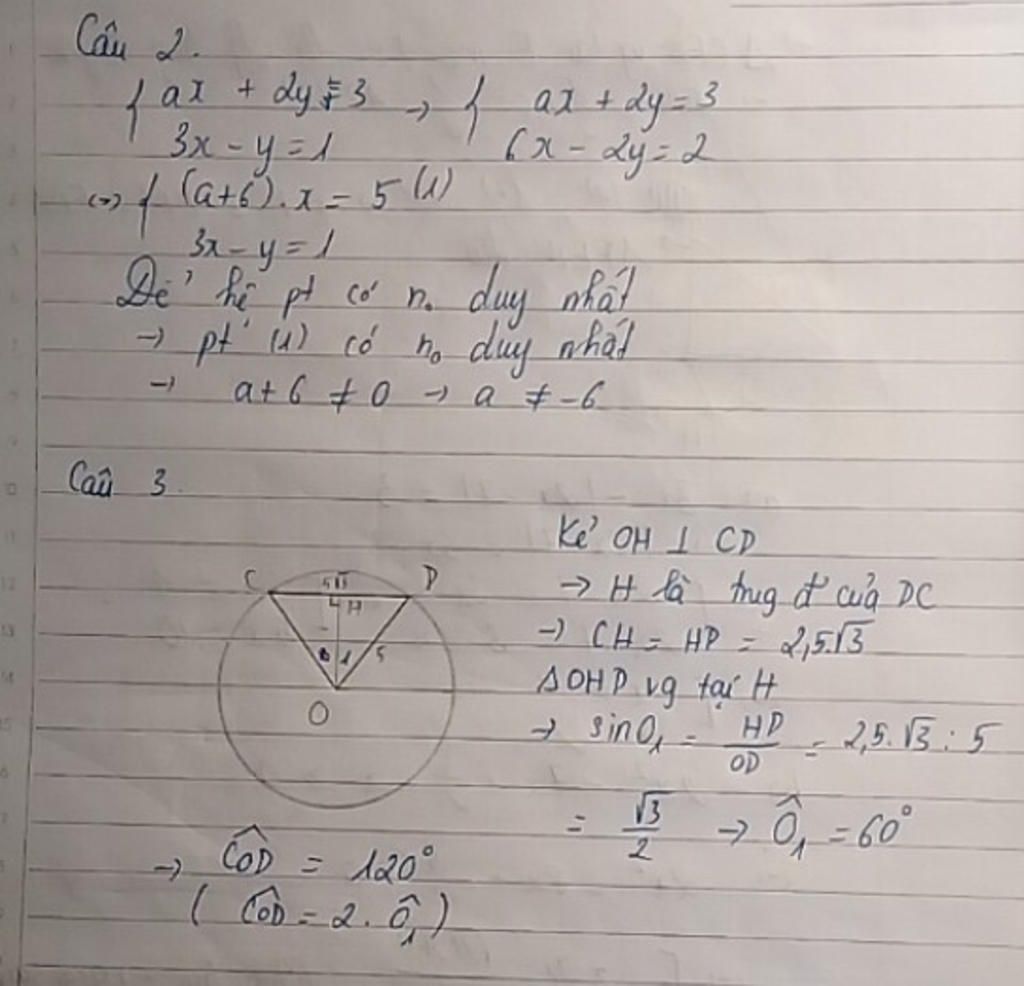 Câu 2.
{ ax + 2y = 3 → { ax + 2y = 3
3x - y = 1 6x - 2y = 2
(=) { (a+6).x = 5 (1)
3x - y = 1
Để hệ pt có no duy nhất
→ pt (1) có no duy nhất
→ a+6 ≠ 0 → a ≠ -6
Câu 3.
Kẻ OH ⊥ CD
C 5√3 D
H
1 5
O
→ H là trug đ' của DC
→ CH = HD = 2,5.√3
ΔOHD vg tại H
→ sinO₁ = HD/OD = 2,5.√3 : 5
= √3/2 → Ô₁ = 60°
→ \widehat{COD} = 120°
( \widehat{COD} = 2. Ô₁ )